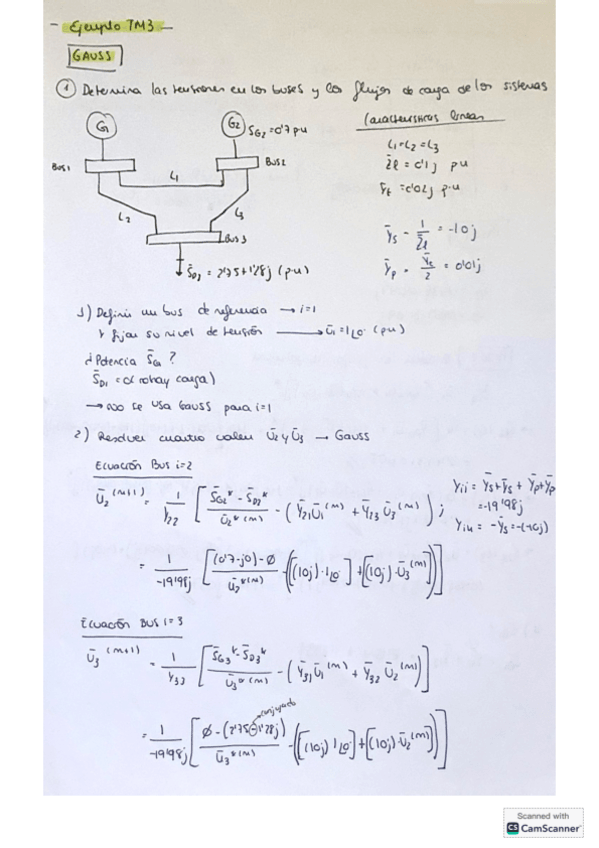 - Ejemplo TM3 -
GAUSS
① Determina las tensiones en los buses y los flujos de carga de los sistemas
G1
G2
SG2=0'7 p.u
BUS 1
BUS 2
L1
L2
L3
BUS 3
S̄D3 = 2'75+1'28j (p.u)
Características líneas
L1=L2=L3
Z̄l = 0'1j p.u
Ȳt = 0'02j p.u
ȳs = 1/Z̄l = -10j
ȳp = Ȳt/2 = 0'01j
1) Definir un bus de referencia → i=1
y fijar su nivel de tensión → Ū1=1∠0° (p.u)
¿Potencia S̄G1?
S̄D1=0 (no hay carga)
→ no se usa GAUSS para i=1
2) Resolver cuanto valen Ū2 y Ū3 → Gauss
Ecuación Bus i=2
Ū2^(m+1) = 1/Y22 [ (S̄G2* - S̄D2*)/Ū2*(m) - (Ȳ21Ū1^(m) + Ȳ23 Ū3^(m)) ;
Yii = Ȳs+Ȳs + Ȳp+Ȳp
=-19'98j
Yik = -Ȳs=-(-10j)
= 1/-19'98j [ ((0'7-j0)-∅)/Ū2*(m) - ([(10j)·1∠0°]+[(10j)·Ū3^(m)]) ]
Ecuación BUS i=3
Ū3^(m+1) = 1/Y33 [ (S̄G3*-S̄D3*)/Ū3*(m) - (Ȳ31Ū1^(m) + Ȳ32 Ū2^(m)) ]
conjugado
= 1/-19'98j [ (∅-(2'75-1'28j))/Ū3*(m) - ([(10j)1∠0°]+[(10j)·Ū2^(m)]) ]
Scanned with
CS CamScanner